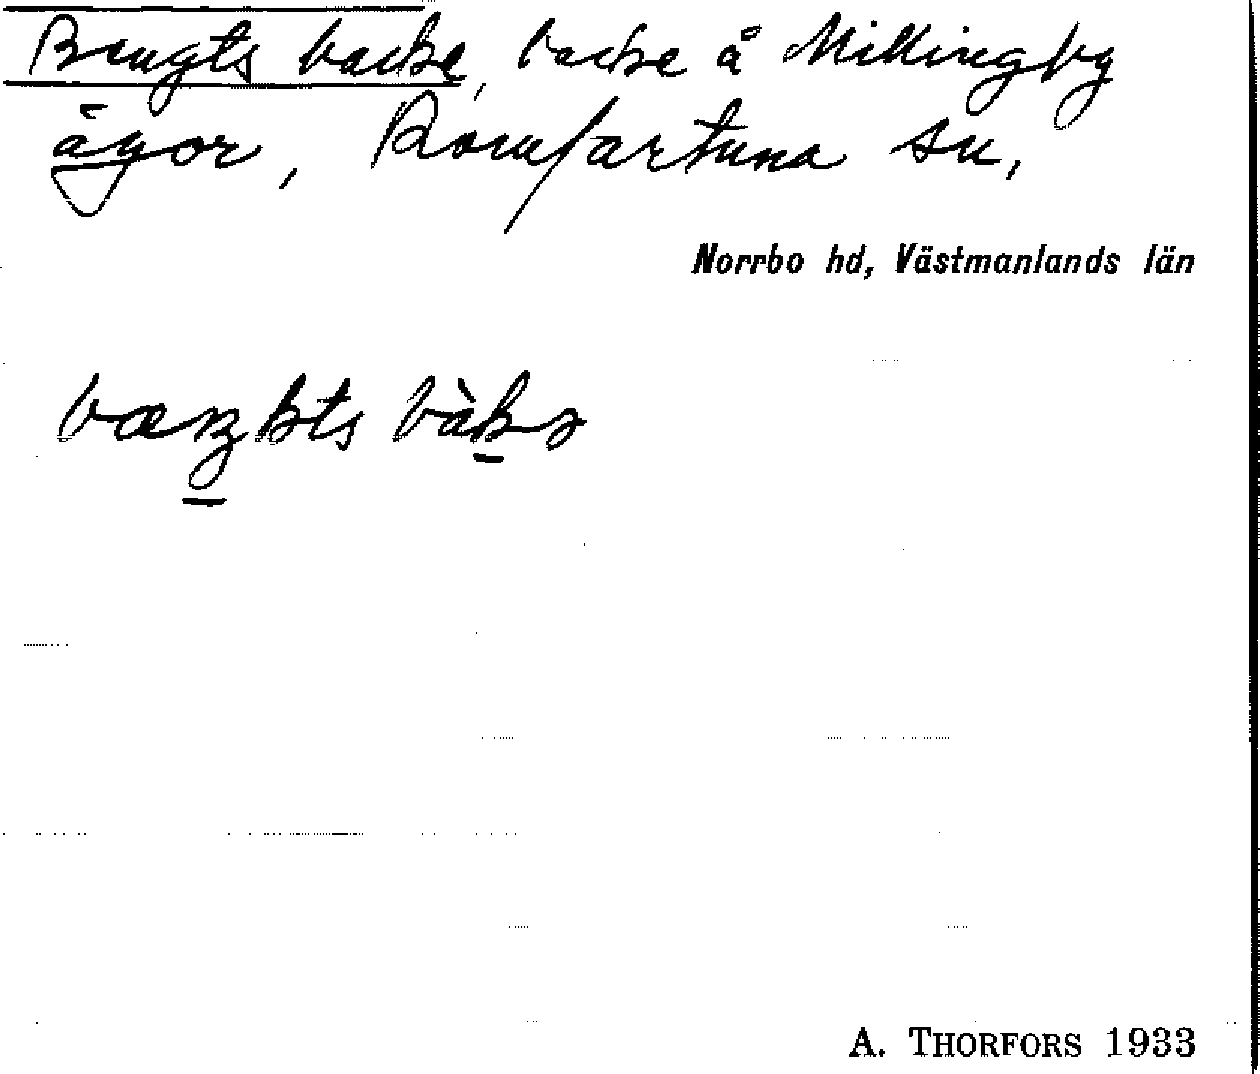 Bengts backe, backe å Millingby
ägor, Romfartuna sn,
Norrbo hd, Västmanlands län
bæŋkts bàkə
A. THORFORS 1933